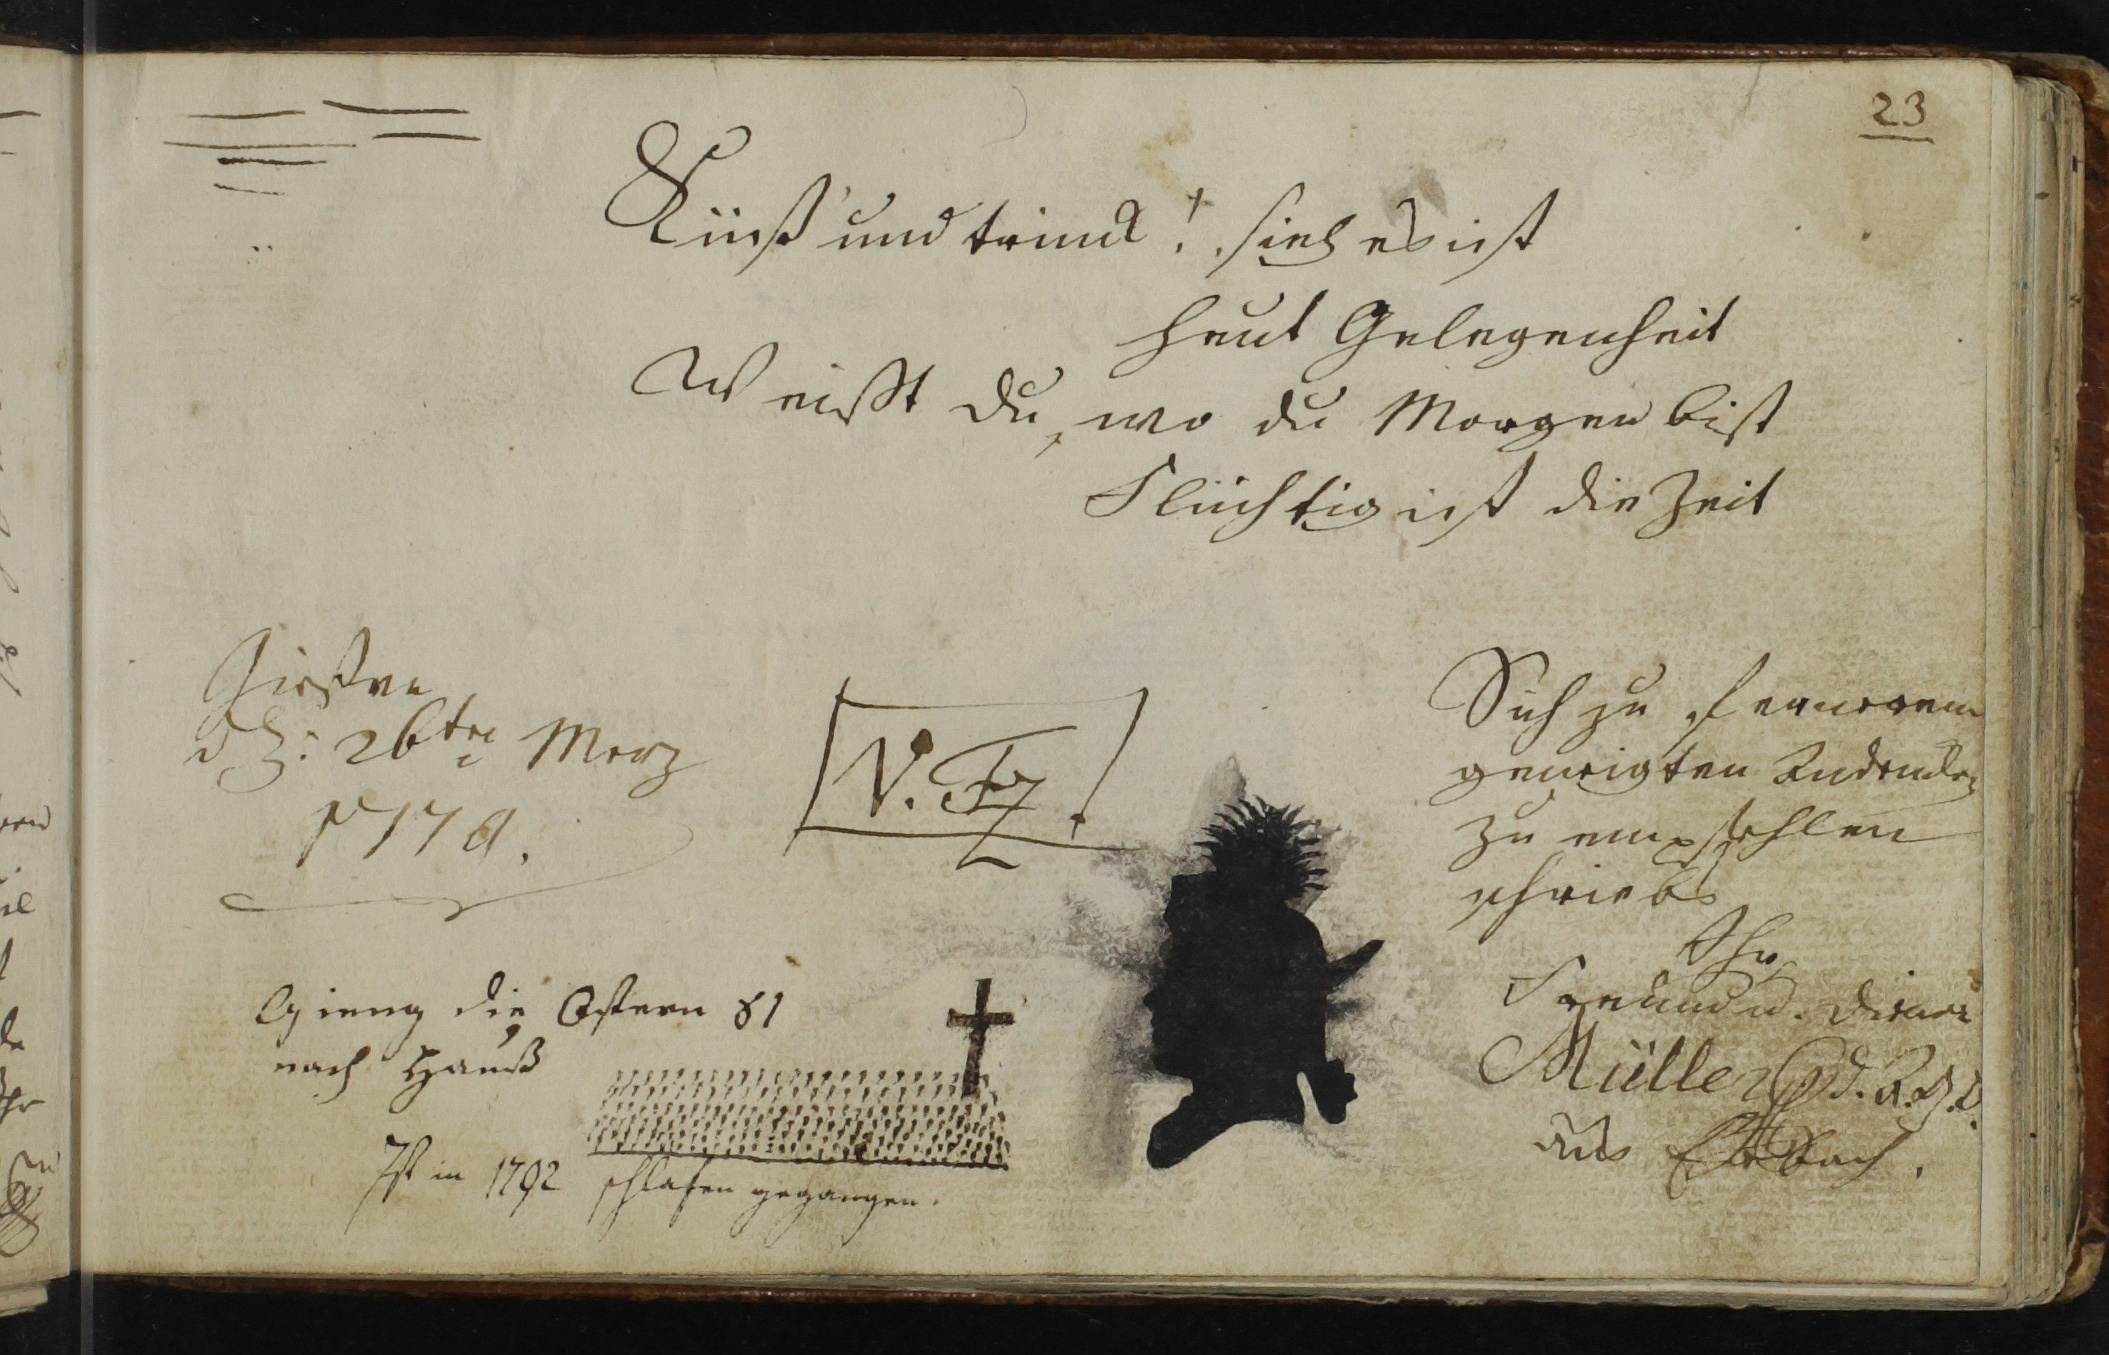 23
Küuß und trinck! sieh es ist
heut Gelegenheit
Weißt du, wo du Morgen bist
Flüchtig ist die Zeit
Giesen
d 26ten Merz
V. Fz.
Sich zu fernerem
geneigten Andencken
zu empfehlen
schriebs
Ihr
Freund u. Diener
Müller d. R. B.
aus Erbach.
Gieng die Ostern 81
nach Hauß
Ist in 1792 schlafen gegangen.